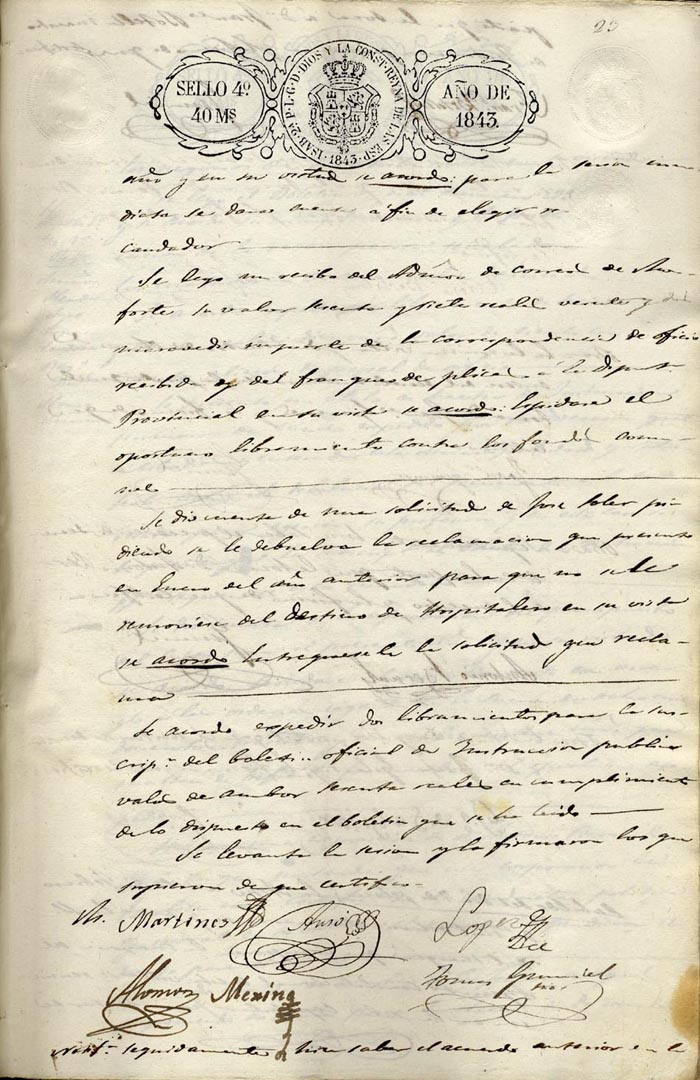 23
SELLO 4º
40 Ms
ISAB. 2ª P. L. G. D. DIOS Y LA CONST. REYNA DE LAS ESP.
1843
AÑO DE
1843.
año y en su virtud se acordo: para la sesion inme
diata se dara cuenta á fin de elegir re
caudador
Se leyo un recibo del Admor. de correos de Mon
forte su valor sesenta y siete reales veinte y dos
maravedis importe de la correspondencia de oficio
recibida y del franqueo de pliegos a la Diput.
Provincial en su vista se acordó: Espidase el
oportuno libramiento contra los fondos comu
nes
Se dio cuenta de una solicitud de Jose Soler pi
diendo se le debuelva la reclamacion que presentó
en Enero del año anterior para que no se le
removiese del destino de Hospitalero en su vista
se acordó Entreguesele la solicitud que recla
ma
Se acordo expedir dos libramientos para la sus
crip.n del boletin oficial de Instruccion publica
valor de ambos sesenta reales en cumplimiento
de lo dispuesto en el boletin que se ha leido
Se levanto la sesion y la firmaron los que
supieron de que certifico.
Martines
Lopez
Alomon Mexina
Tomas
seguidamente hice saber el acuerdo anterior en la